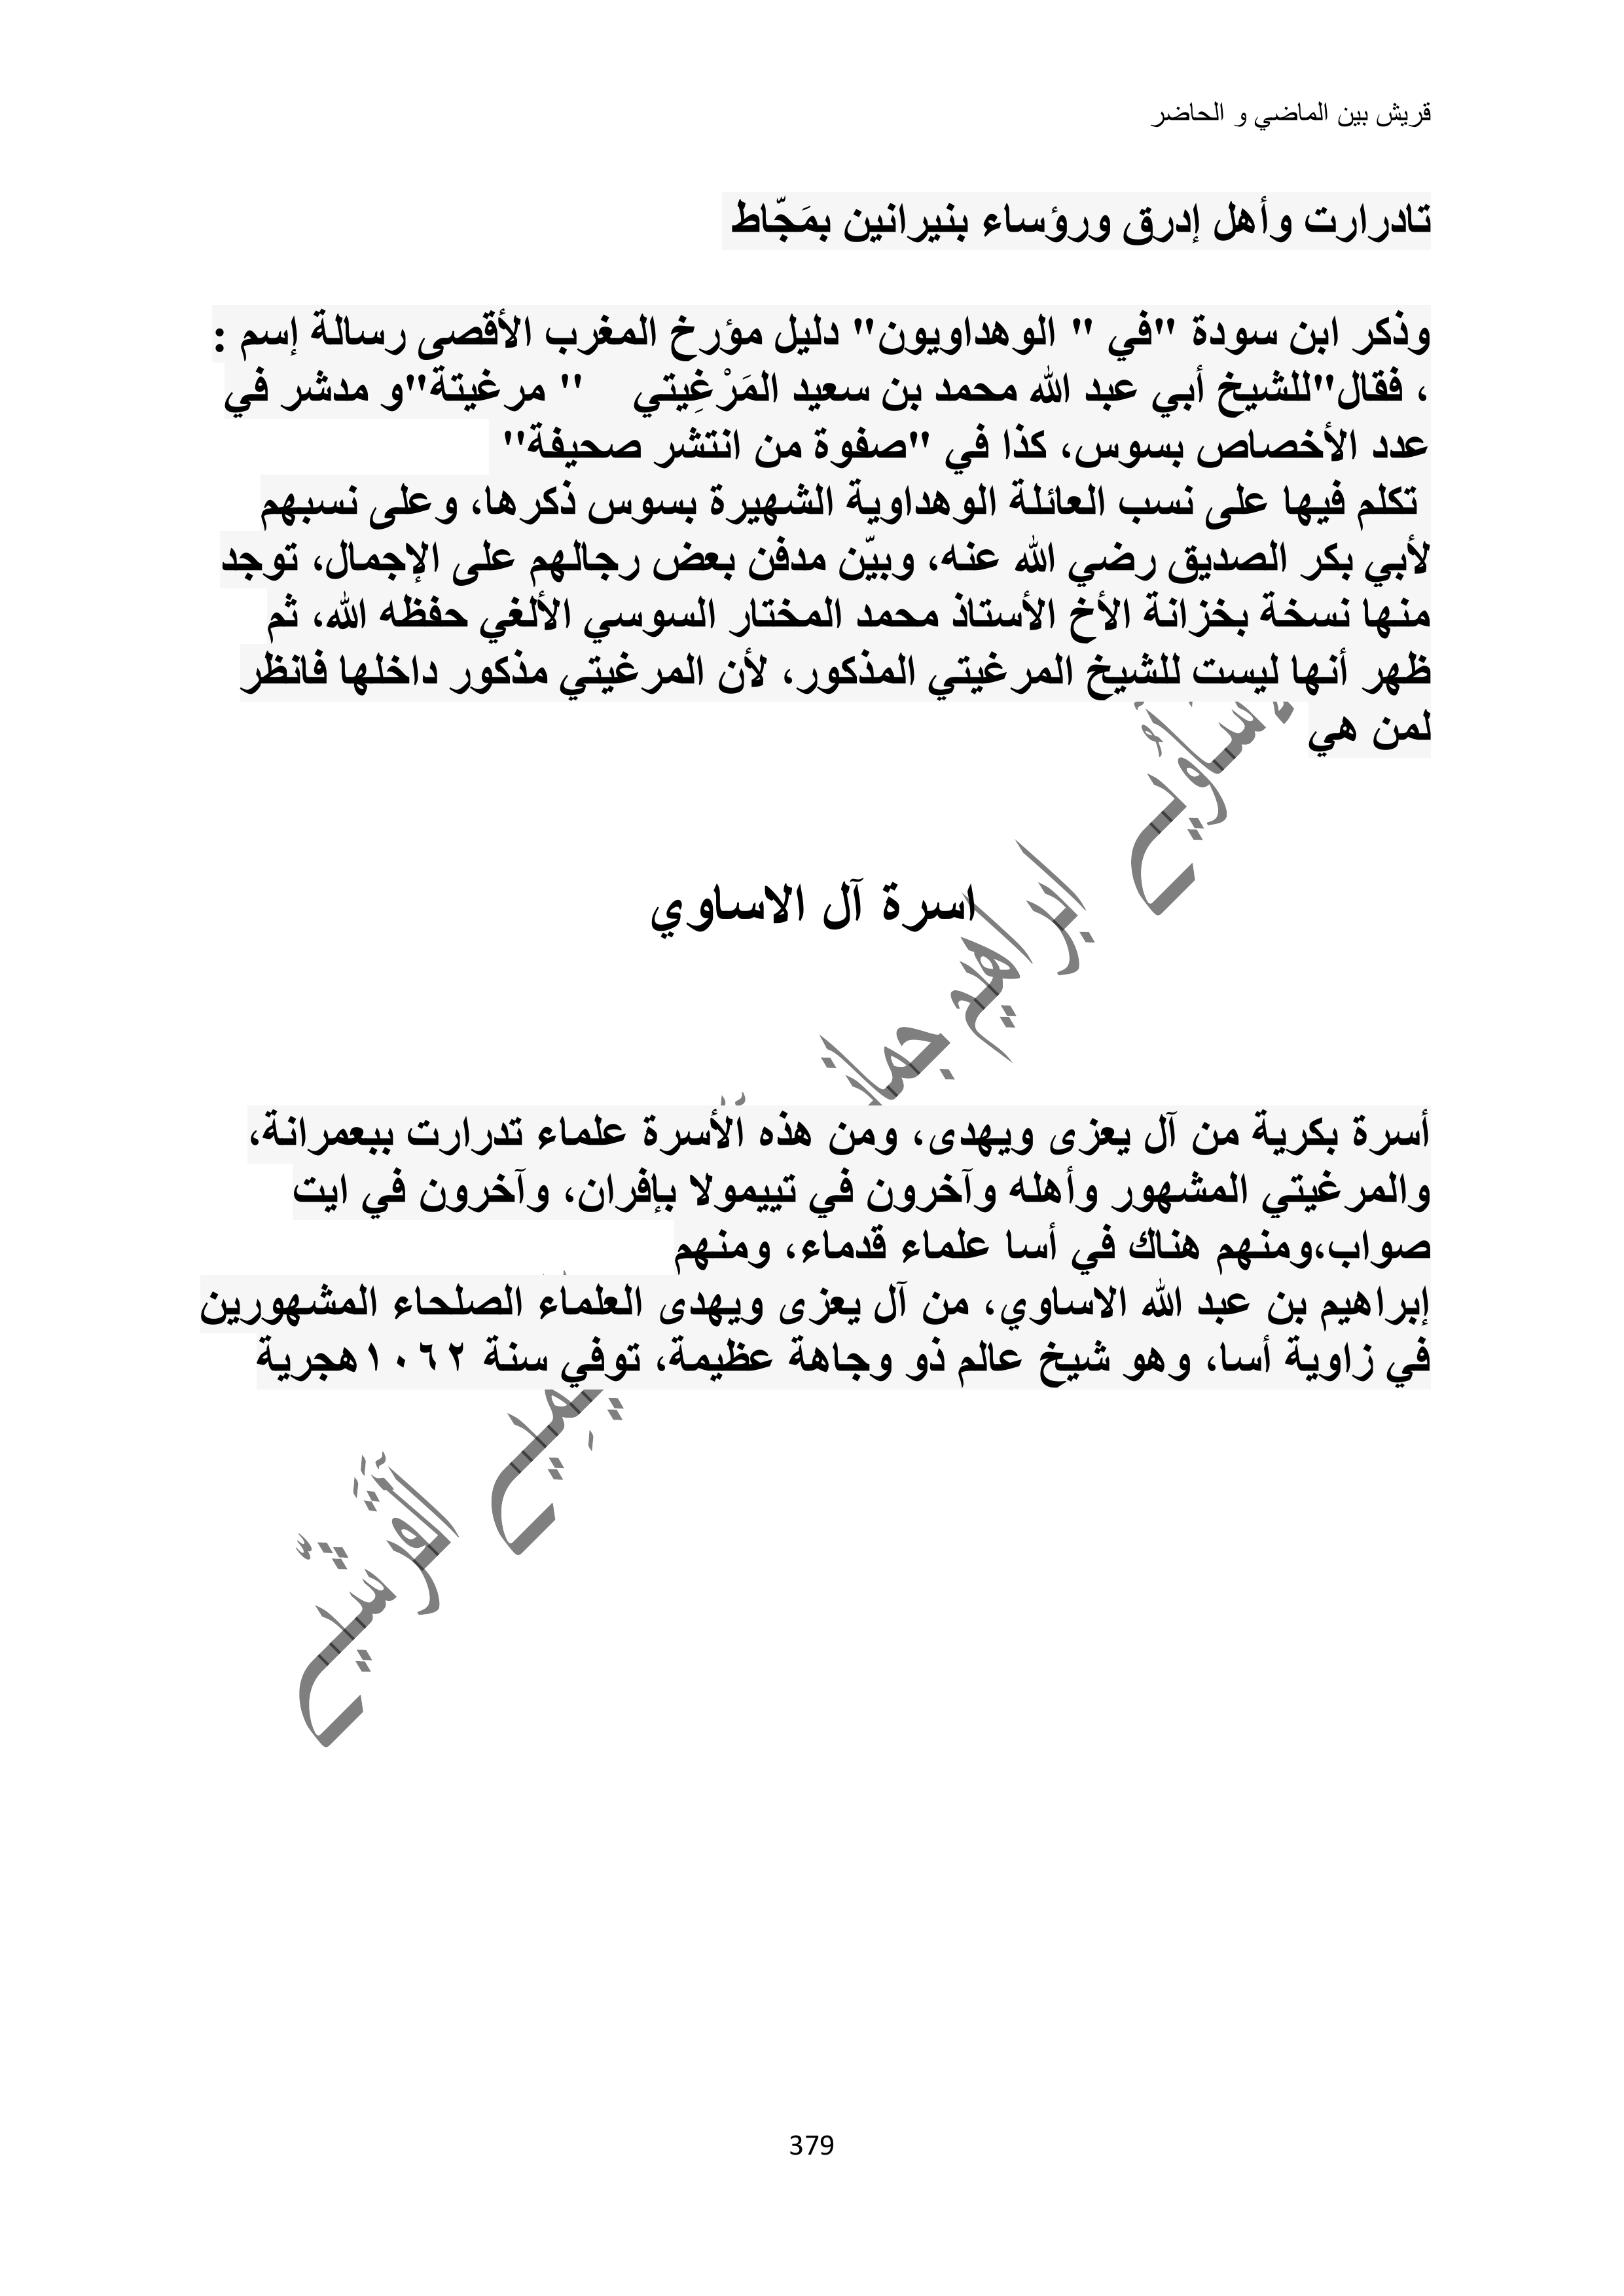 قريش بين الماضي و الحاضر
تادرارت وأهل إدرق ورؤساء بنيرانين بمَجّاط
وذكر ابن سودة "في " الوهداويون" دليل مؤرخ المغرب الأقصى رسالة إسم :
، فقال"للشيخ أبي عبد الله محمد بن سعيد المَرْغِيتي " مرغيتة"و مدشر في
عدد الأخصاص بسوس، كذا في "صفوة من انتشر صحيفة"
تكلم فيها على نسب العائلة الوهداوية الشهيرة بسوس ذكرها، وعلى نسبهم
لأبي بكر الصديق رضي الله عنه، وبيّن مدفن بعض رجالهم على الإجمال، توجد
منها نسخة بخزانة الأخ الأستاذ محمد المختار السوسي الألغي حفظه الله، ثم
ظهر أنها ليست للشيخ المرغيتي المذكور، لأن المرغيتي مذكور داخلها فانظر
لمن هي
اسرة آل الاساوي
أسرة بكرية من آل يعزى ويهدى، ومن هذه الأسرة علماء تدرارت ببعمرانة،
والمرغيتي المشهور وأهله وآخرون في تييمولا بإفران، وآخرون في ايت
صواب،ومنهم هناك في أسا علماء قدماء، ومنهم
إبراهيم بن عبد الله الاساوي، من آل يعزى ويهدى العلماء الصلحاء المشهورين
في زاوية أسا، وهو شيخ عالم ذو وجاهة عظيمة، توفي سنة ١٠٦٢هجرية
ابراهيم
القرشي
379